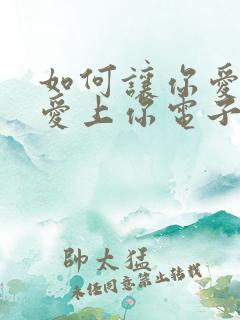 如何讓你愛
愛上你電子
帥太猛
未經同意禁止轉載